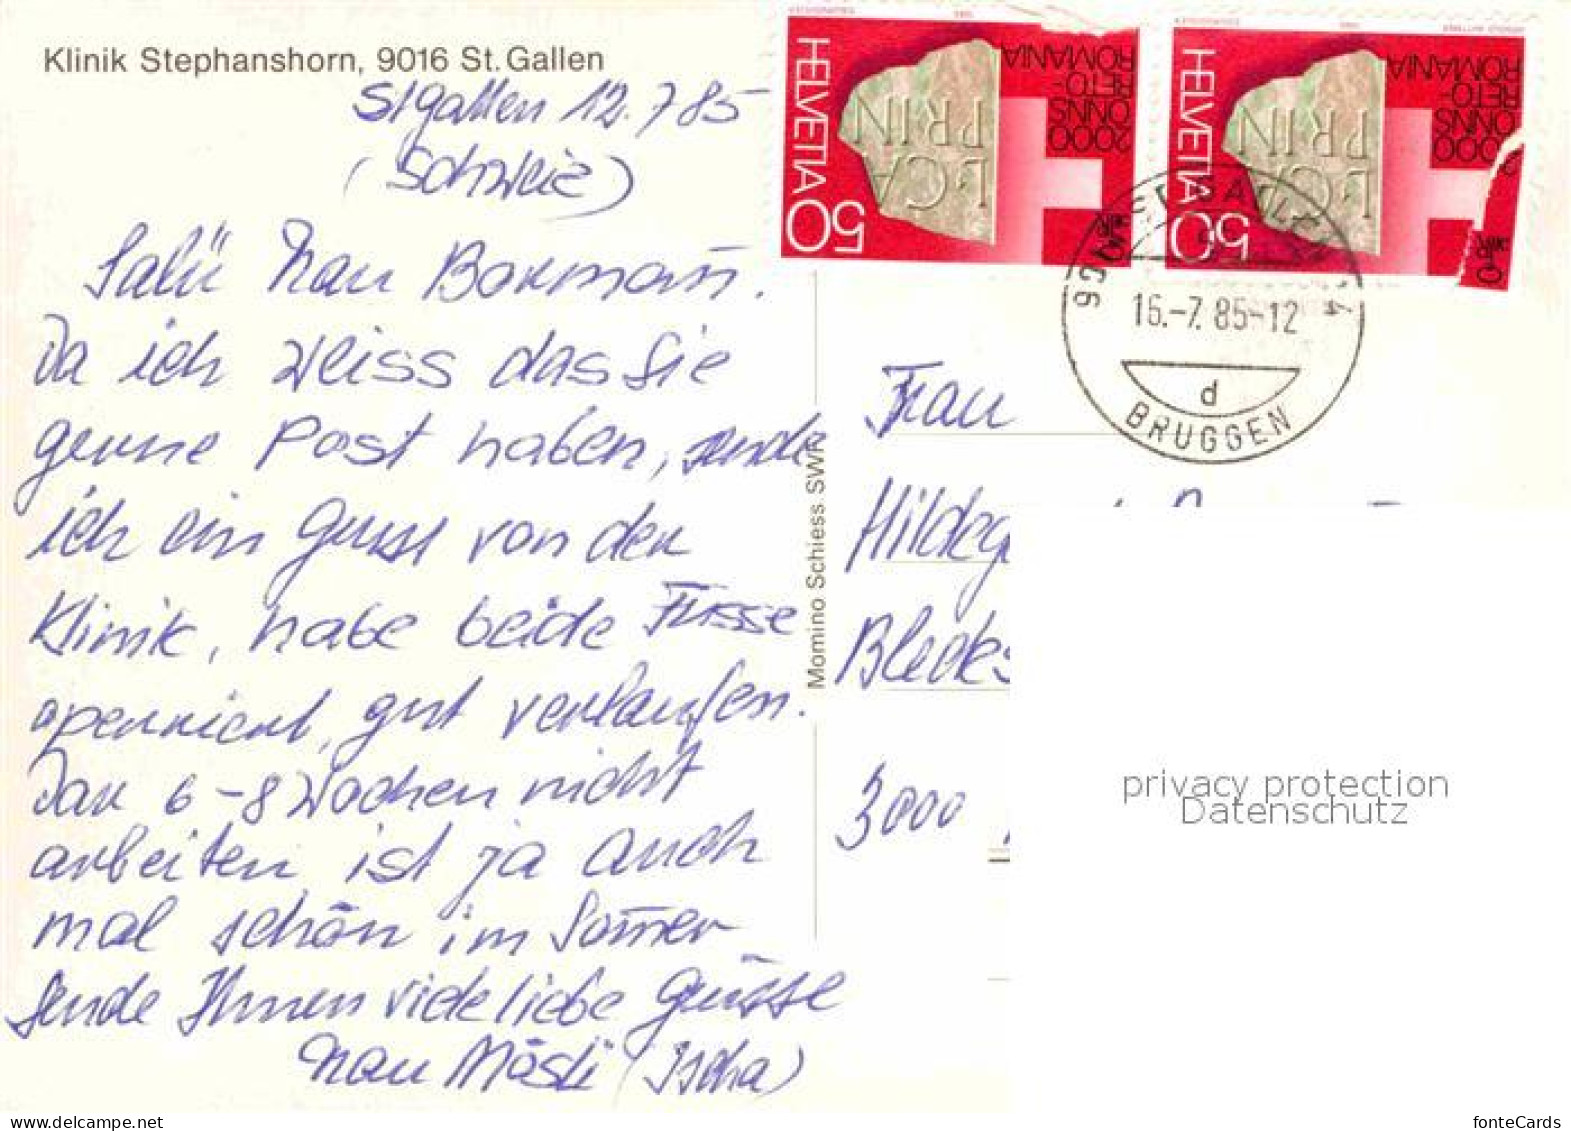 Klinik Stephanshorn, 9016 St. Gallen
Stgallen 12.7 85
(Schweiz)
Salü Frau Bormann.
Da ich weiss das Sie
gerne Post haben, sende
ich ein Gruss von der
Klinik, habe beide Füsse
operriert, gut verlaufen.
Dar 6-8 Wochen nicht
arbeiten, ist ja auch
mal schön im Som̄er
Sende Ihnen viele liebe Grüsse
Frau Mösli (Ischa)
Momino Schiess SWR
HELVETIA 50
2000
ONNS
RETO-
ROMANIA
L·CA
PRIN
HELVETIA 50
2000
ONNS
RETO-
ROMANIA
L·CA
PRIN
16.-7.85-12
d
BRUGGEN
Frau
Hildeg
Bleckes
3000
privacy protection
Datenschutz
fonteCards